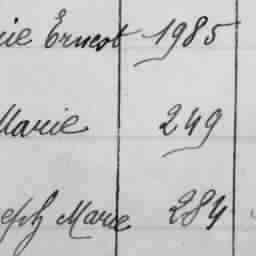 Ernest 1985
Marie 249
Marie 284